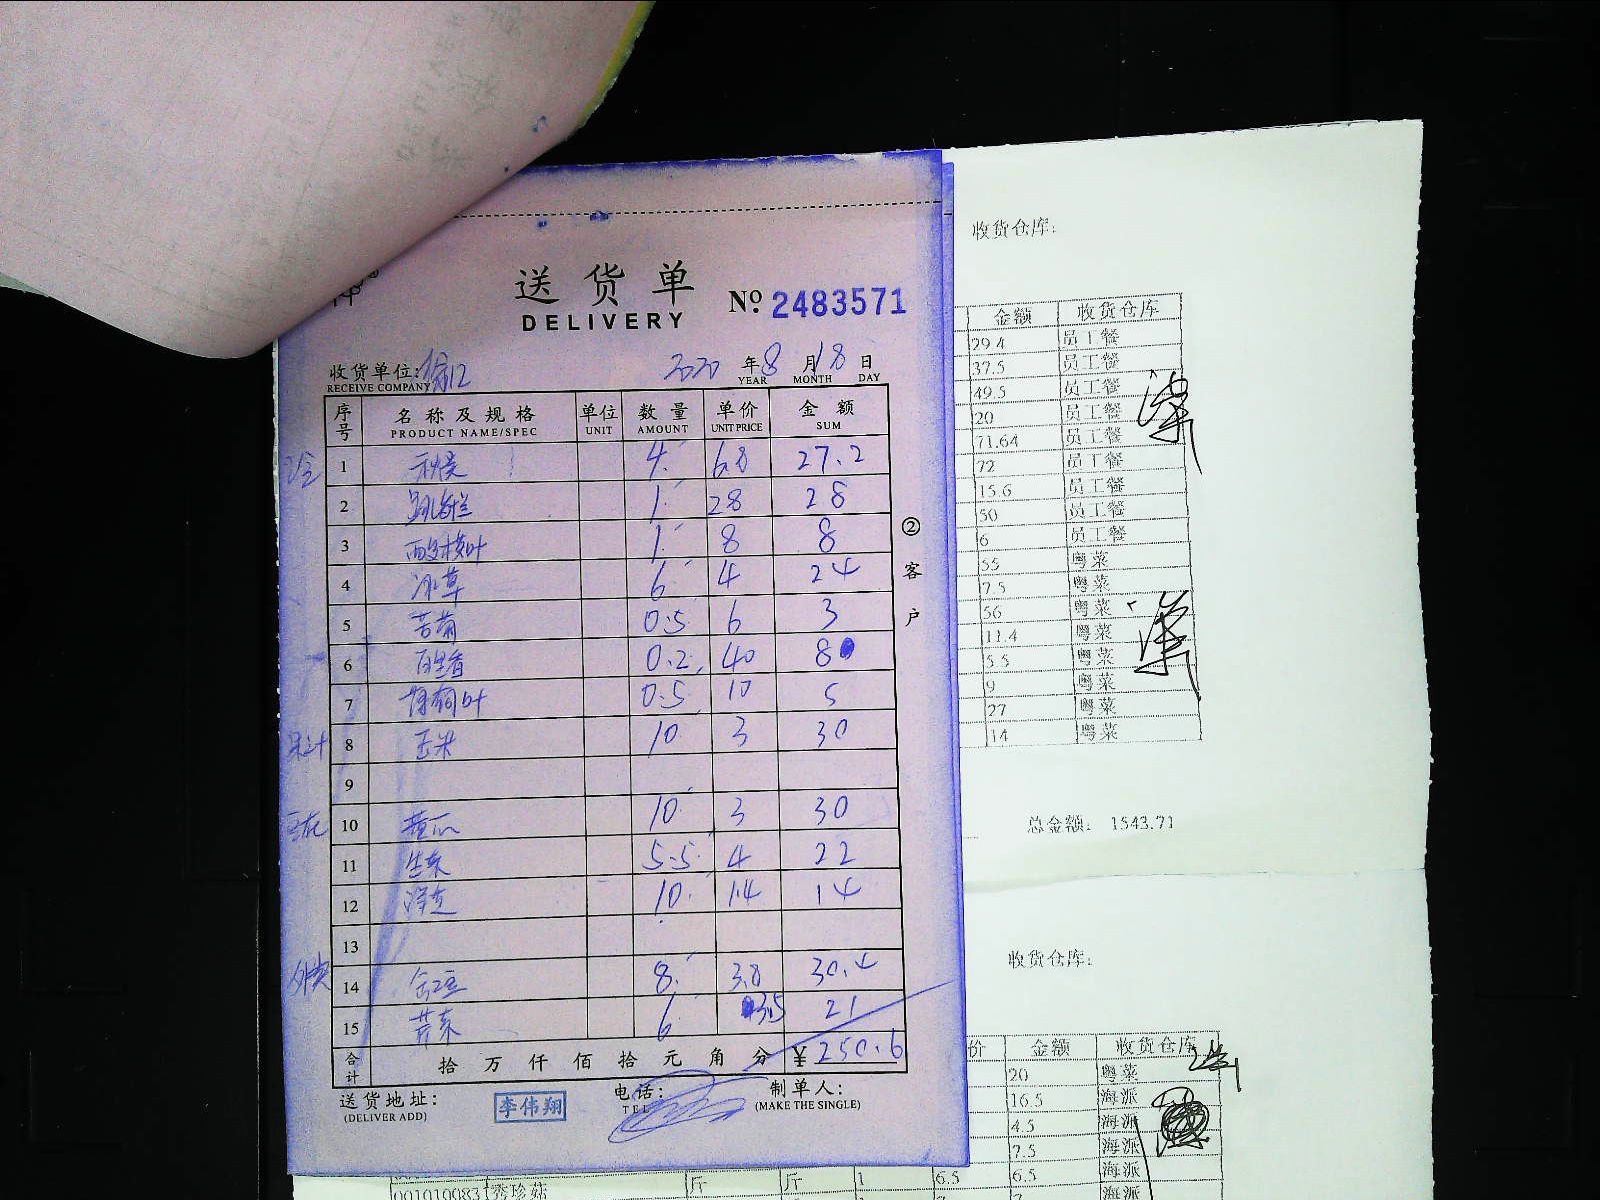 送货单
DELIVERY
No 2483571
收货单位:
RECEIVE COMPANY
2020 年 8 月 18 日
YEAR MONTH DAY
序号 名称及规格 单位 数量 单价 金额
PRODUCT NAME/SPEC UNIT AMOUNT UNIT PRICE SUM
1 秋葵 4 6.8 27.2
2 1 28 28
3 1 8 8
4 冰草 6 4 24
5 苦菊 0.5 6 3
6 百里香 0.2 40 8
7 0.5 10 5
果汁 8 玉米 10 3 30
9
10 黄瓜 10 3 30
11 生菜 5.5 4 22
12 10 1.4 14
13
14 8 3.8 30.4
15 芹菜 6 3.5 21
合计 拾 万 仟 佰 拾 元 角 分 ¥250.6
送货地址:
(DELIVER ADD)
李伟翔
电话:
TEL
制单人:
(MAKE THE SINGLE)
②客户
收货仓库:
金额 收货仓库
29.4 员工餐
37.5 员工餐
49.5 员工餐
20 员工餐
71.64 员工餐
72 员工餐
15.6 员工餐
50 员工餐
6 员工餐
55 粤菜
7.5 粤菜
56 粤菜
11.4 粤菜
5.5 粤菜
9 粤菜
27 粤菜
14 粤菜
总金额: 1543.71
收货仓库:
价 金额 收货仓库
20 粤菜
16.5 海派
4.5 海派
7.5 海派
斤 斤 1 6.5 6.5 海派
001010083 秀珍菇 海派